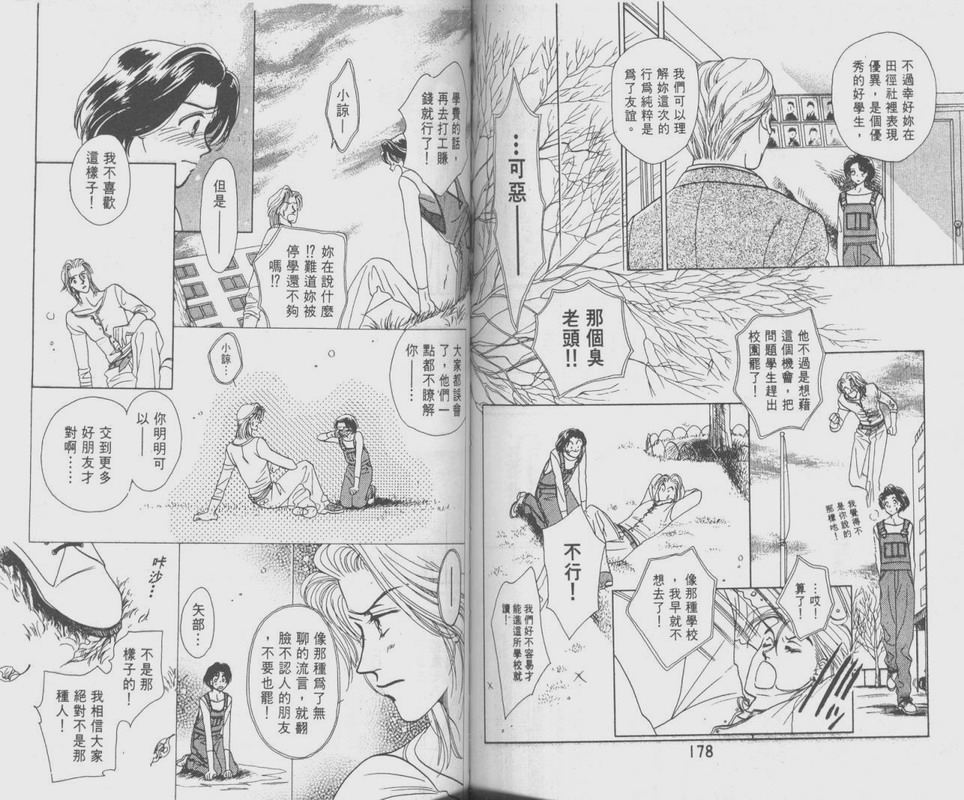 不過幸好妳在
田徑社裡表現
優異，是個優
秀的好學生，
我們可以理
解妳這次的
行爲純粹是
爲了友誼。
…可惡——
那個臭
老頭!!
他不過是想藉
這個機會，把
問題學生趕出
校園罷了！
我覺得不
是你說的
那樣吔！
…哎！
算了！
像那種學校
，我早就不
想去了！
不行！
我們好不容易才
能進這所學校就
讀！
178
學費的話，
再去打工賺
錢就行了！
小諒—
但是——
妳在說什麼
!?難道妳被
停學還不夠
嗎!?
我不喜歡
這樣子！
大家都誤會
了，他們一
點都不瞭解
你……
小諒…
你明明可
以—
交到更多
好朋友才
對啊……
——
像那種爲了無
聊的流言，就翻
臉不認人的朋友
，不要也罷！
矢部…
咔沙…
不是那
樣子的！
我相信大家
絕對不是那
種人！